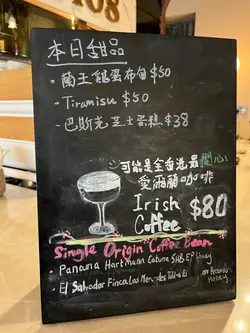 108
本日甜品
· 蘭王雞蛋布甸 $50
· Tiramisu $50
· 巴斯克芝士蛋糕 $38
可能是全香港最開心
愛爾蘭咖啡
Irish
Coffee $80
Single Origin Coffee Bean
· Panama Hartmann Cabure SHB EP Honey
· El Salvador Finca Las
Honey